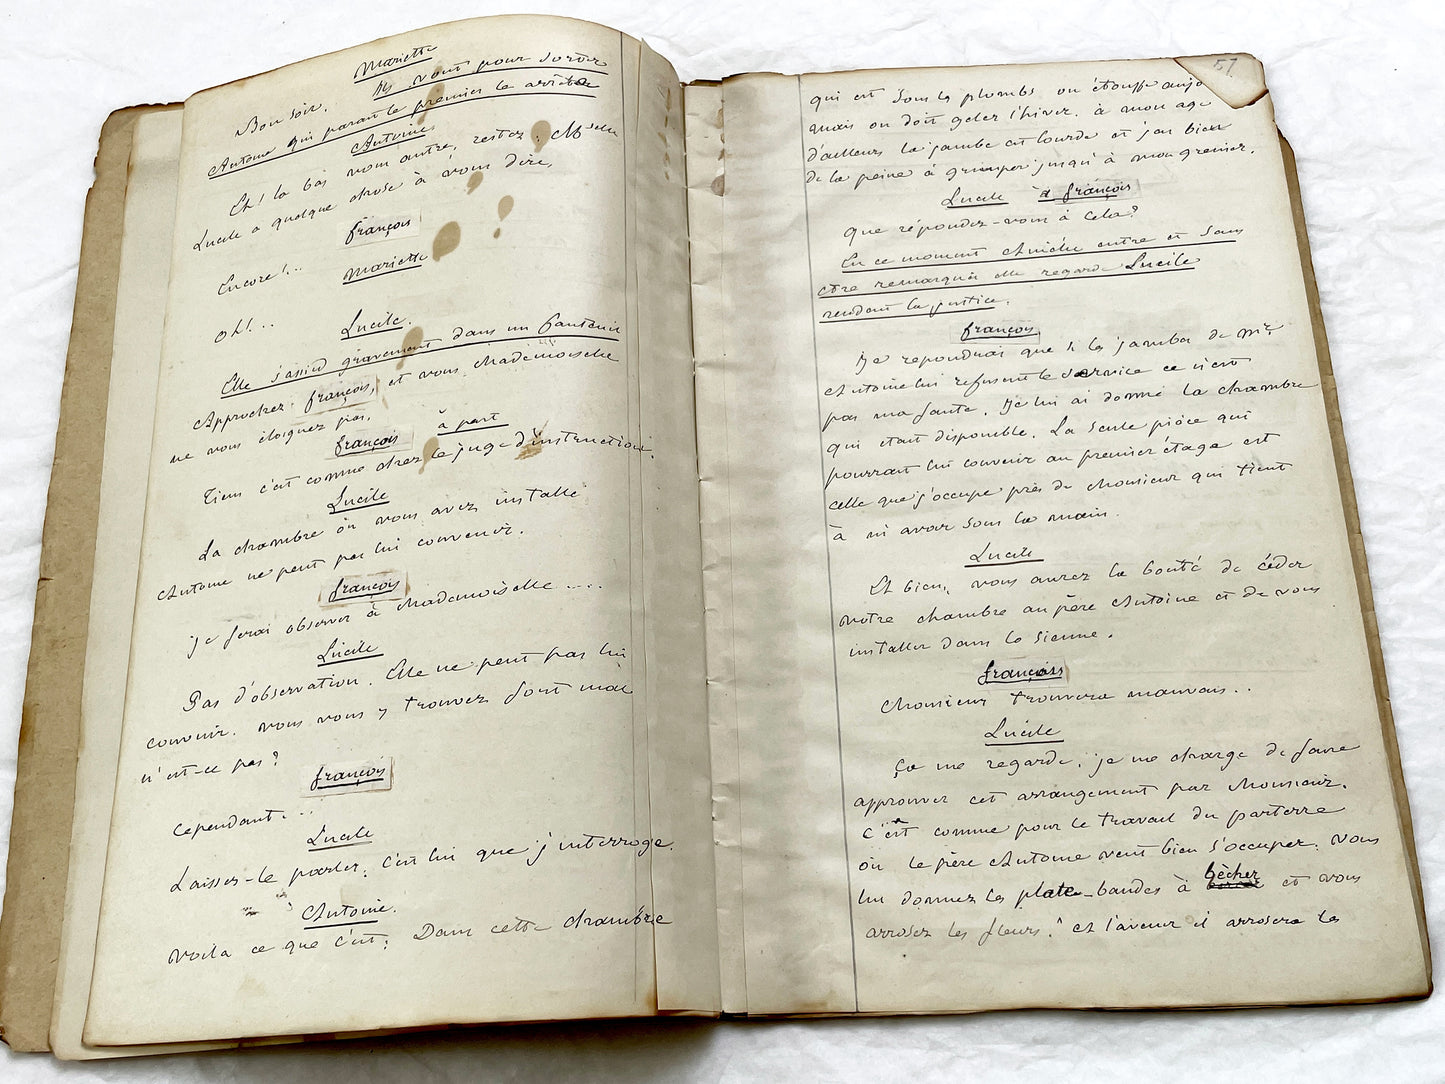 Mariette
Bon soir. Ils vont pour sortir
Antoine qui parait le premier les arrête
Antoine
Eh! la bas vous autre, restez. Mselle
Lucile a quelque chose à vous dire,
françois
Encore!...
Mariette
oh!...
Lucile.
Elle s'assied gravement dans un fauteuil
Approchez françois, et vous Mademoiselle
ne vous éloignez pas.
françois à part
Tiens c'est comme chez le juge d'instruction.
Lucile
La chambre où vous avez installé
Antoine ne peut pas lui convenir.
françois
je ferai observer à Mademoiselle ....
Lucile
Pas d'observation. Elle ne peut pas lui
convenir. vous vous y trouvez fort mal
n'est-ce pas?
françois
cependant...
Lucile
Laissez-le parler, c'est lui que j'interroge.
Antoine.
voila ce que c'est: Dans cette chambre
57
qui est sous les plombs on étouffe aujo
mais on doit geler l'hiver. à mon age
d'ailleurs la jambe est lourde et j'ai bien
de la peine à grimper jusqu'à mon grenier.
Lucile à françois
que répondez-vous à cela?
En ce moment entre et sans
être remarquée elle regarde Lucile
rendant la justice.
françois
Je repondrai que si les jambes de Mr
Antoine lui refusent le service ce n'est
pas ma faute. Je lui ai donné la chambre
qui était disponible. La seule pièce qui
pourrait lui convenir au premier étage est
celle que j'occupe près de Monsieur qui tient
à m'avoir sous la main.
Lucile
Et bien, vous aurez la bonté de céder
votre chambre au père Antoine et de vous
installer dans la sienne.
françois
Monsieur trouvera mauvais..
Lucile
Ça me regarde; je me charge de faire
approuver cet arrangement par Monsieur.
C'est comme pour le travail du parterre
où le père Antoine veut bien s'occuper. Vous
lui donnez les plate-bandes à bêcher et vous
arrosez les fleurs: à l'avenir il arrosera les